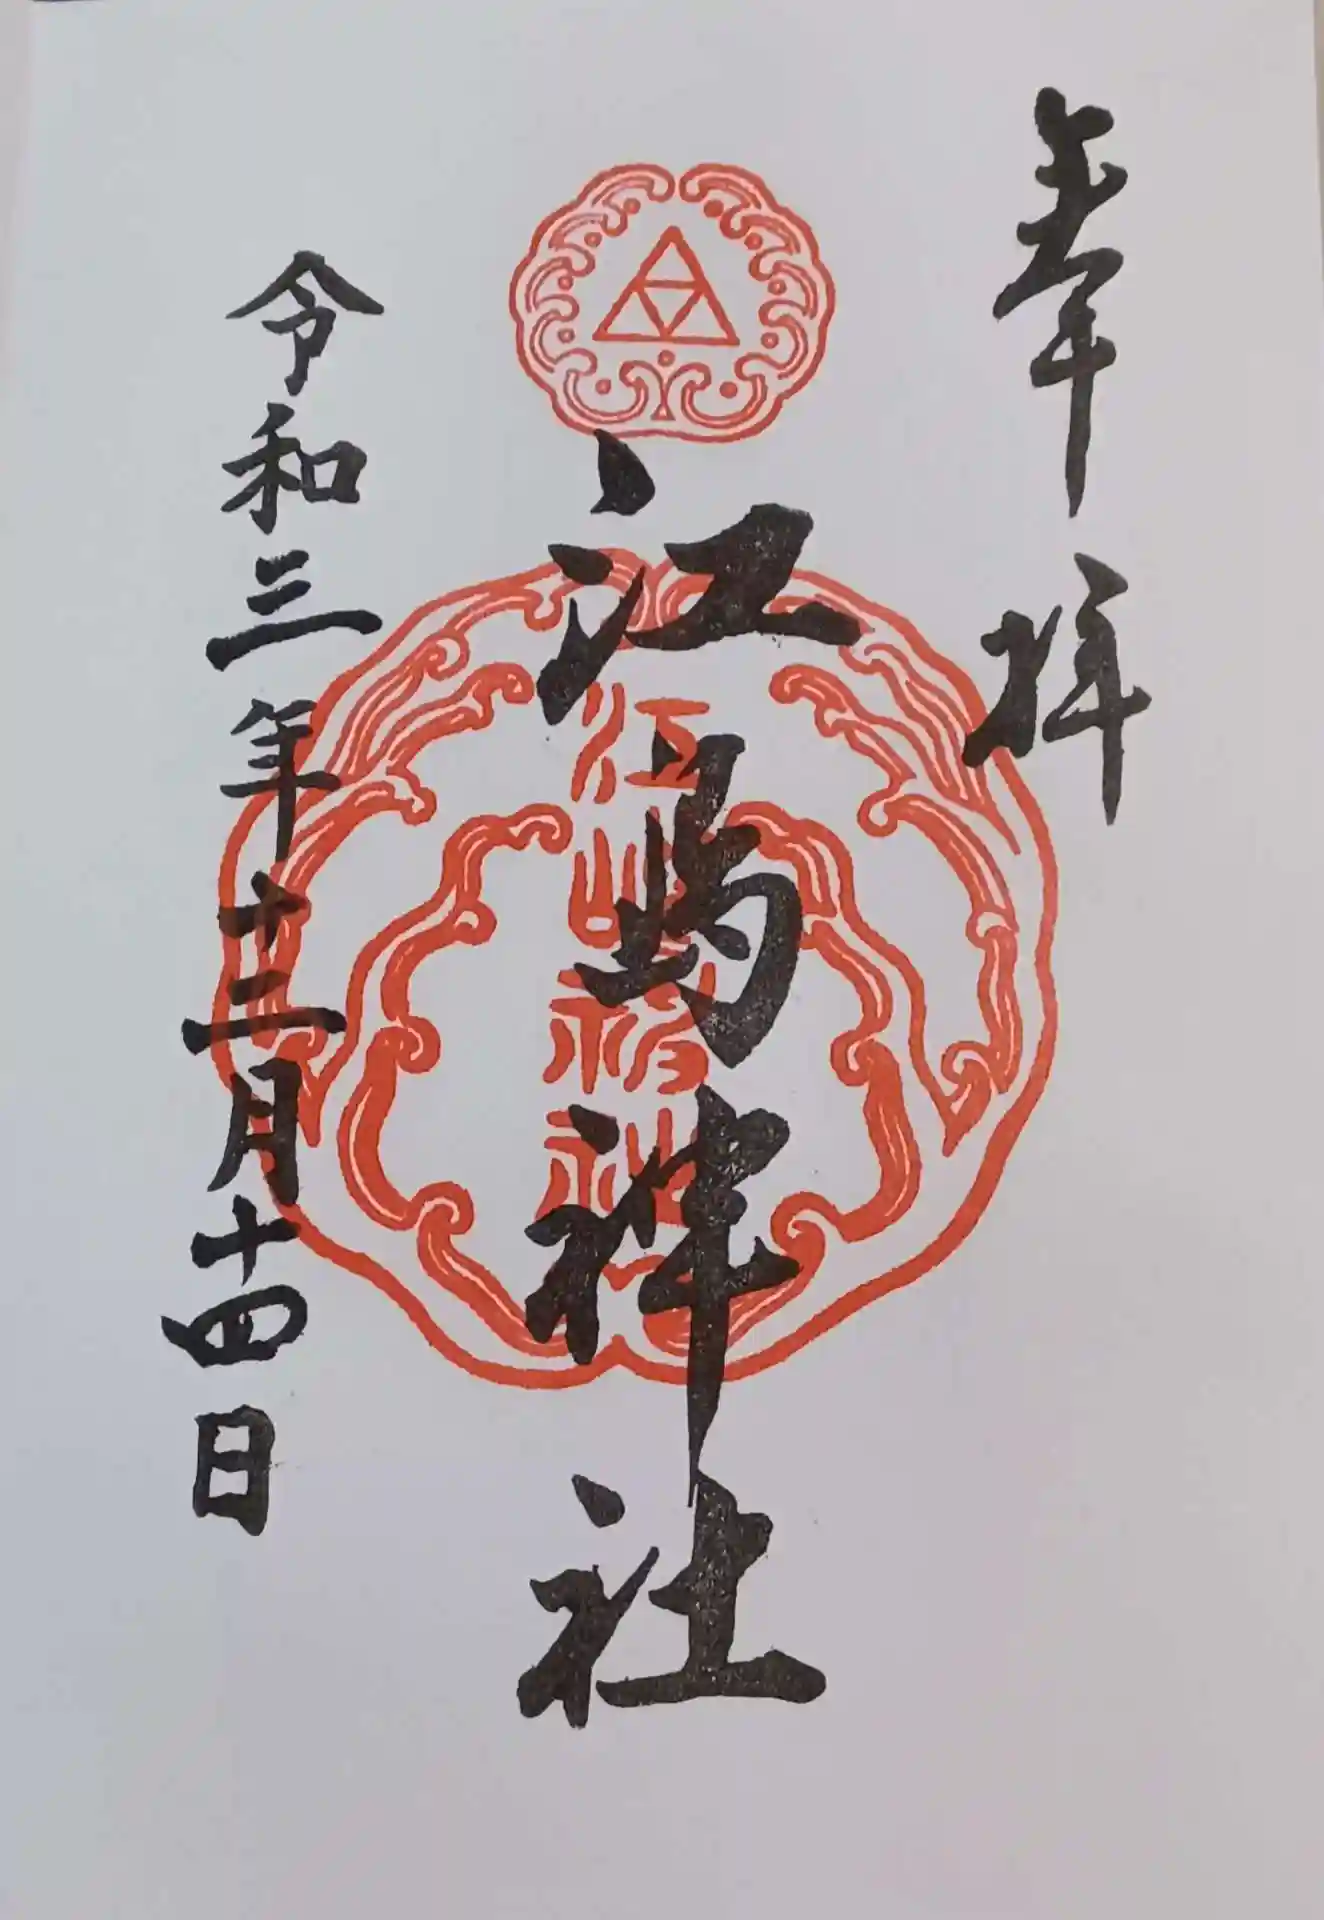 奉拝
江島神社
江島神社
令和三年十二月十四日